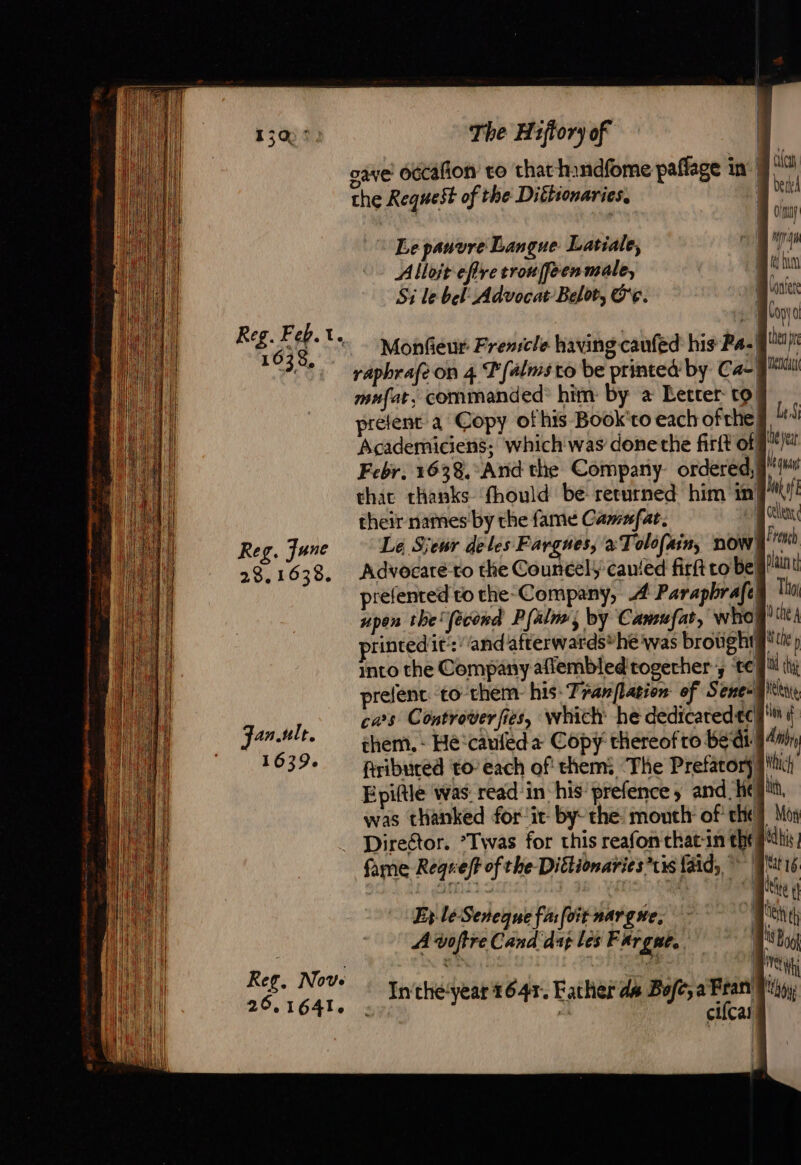 130
The Hiſtory of
gave occaſion to that handſome paſſage in
the Requeſt of the Dictionaries.
Le pauvre Langue Latiale,
Alloit eſtre trouſſéen male,
Si le bel Advocat Belot, &c.
Reg. Feb. 1.
1638.
Monſieur Frenicle having cauſed his Pa-
raphraſe on 4 Pſalms to be printed by Ca-
muſat, commanded him by a Letter to
preſent a Copy of his Book to each of the
Academiciens; which was done the firſt of
Febr. 1638. And the Company ordered,
that thanks ſhould be returned him in
their names by the ſame Camuſat.
Reg. June
28. 1638.
Le Sieur de les Fargues, a Toloſain, now
Advocate to the Councel, cauſed firſt to be
preſented to the Company, A Paraphraſe
upon the ſecond Pſalm; by Camuſat, who
printed it: and afterwards he was brought
into the Company aſſembled together, to
preſent to them his Tranſlation of Sene-
ca's Controverſies, which he dedicated to
Jan. ult.
1639.
them. He cauſed a Copy thereof to be di-
ſtributed to each of them: The Prefatory
Epiſtle was read in his preſence, and he
was thanked for it by the mouth of the
Director. 'Twas for this reaſon that in the
ſame Requeſt of the Dictionaries 'tis ſaid,
Et le Seneque faiſoit nargue,
A voſtre Candidat les Fargue.
Reg. Nov.
26. 1641.
In the year 1641. Father du Boſc, a Fran
ciſcan